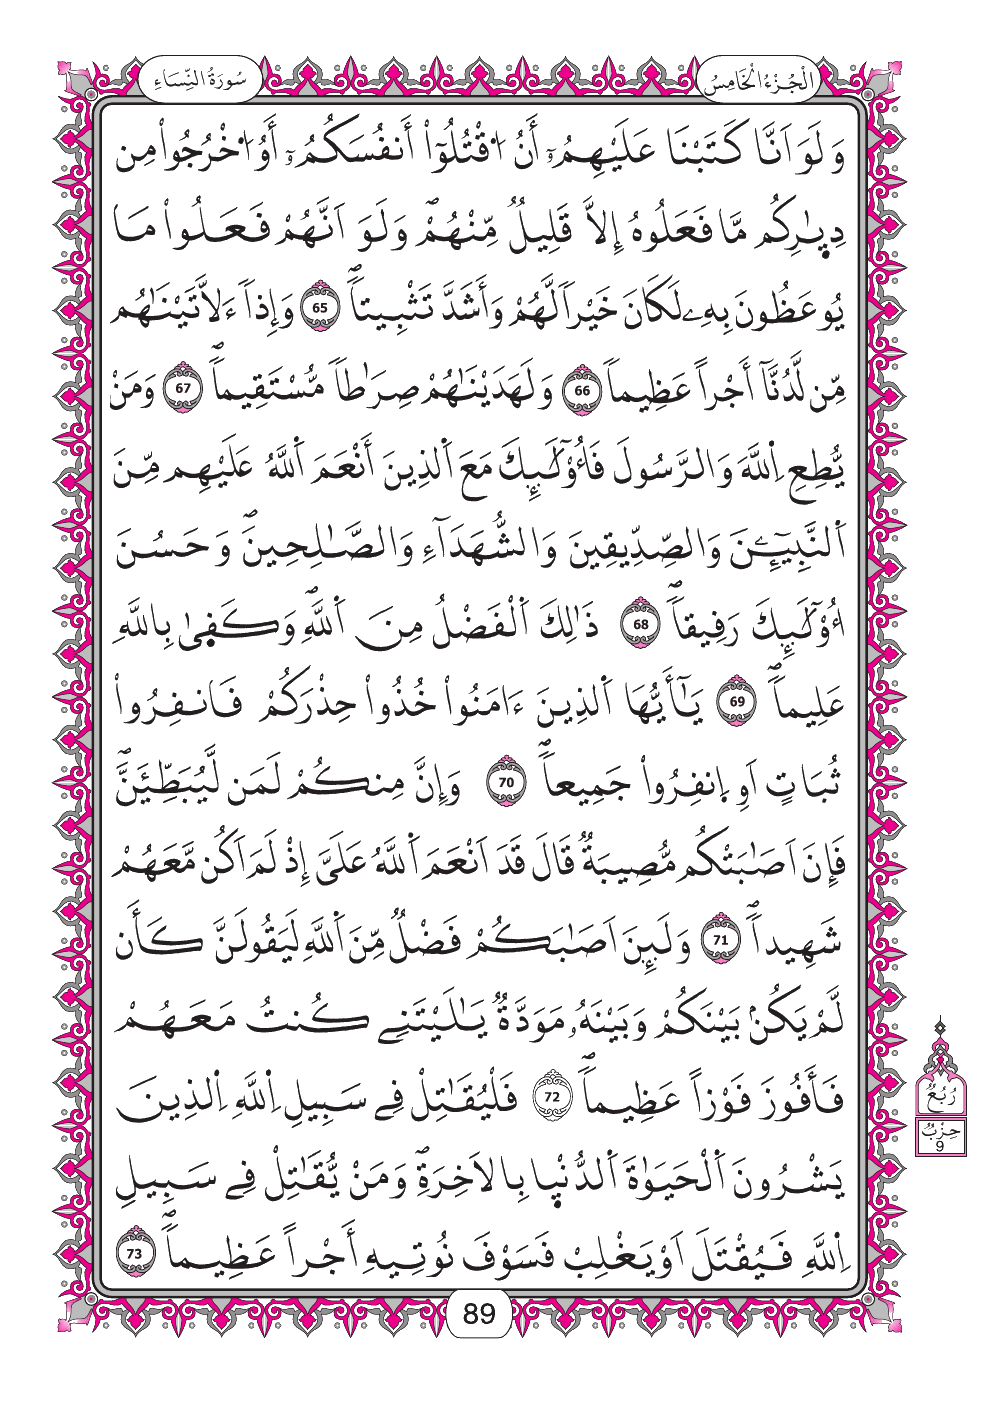 سُورَةُ النِّسَاءِ
الْجُزْءُ الْخَامِسُ
وَلَوَ اَنَّا كَتَبْنَا عَلَيْهِمُۥٓ أَنُ اُ۟قْتُلُوٓاْ أَنفُسَكُمُۥٓ أَوُ اُ۟خْرُجُواْ مِن
دِيٰ۪رِكُم مَّا فَعَلُوهُ إِلاَّ قَلِيلٌ مِّنْهُمْۖ وَلَوَ اَنَّهُمْ فَعَلُواْ مَا
يُوعَظُونَ بِهِۦ لَكَانَ خَيْراٗ لَّهُمْ وَأَشَدَّ تَثْبِيتاٗۖ 65 وَإِذاٗ ءَلَاتَيْنَٰهُم
مِّن لَّدُنَّآ أَجْراً عَظِيماٗ 66 وَلَهَدَيْنَٰهُمْ صِرَٰطاٗ مُّسْتَقِيماٗۖ 67 وَمَنْ
يُّطِعِ اِ۬للَّهَ وَالرَّسُولَ فَأُوْلَٰٓئِكَ مَعَ اَ۬لذِينَ أَنْعَمَ اَ۬للَّهُ عَلَيْهِم مِّنَ
اَ۬لنَّبِيٓـِٕۧنَ وَالصِّدِّيقِينَ وَالشُّهَدَآءِ وَالصَّٰلِحِينَۖ وَحَسُنَ
أُوْلَٰٓئِكَ رَفِيقاٗۖ 68 ذَٰلِكَ اَ۬لْفَضْلُ مِنَ اَ۬للَّهِۖ وَكَف۪ىٰ بِاللَّهِ
عَلِيماٗۖ 69 يَٰٓأَيُّهَا اَ۬لذِينَ ءَامَنُواْ خُذُواْ حِذْرَكُمْ فَانفِرُواْ
ثُبَاتٍ اَوِ اِ۪نفِرُواْ جَمِيعاٗۖ 70 وَإِنَّ مِنكُمْ لَمَن لَّيُبَطِّئَنَّۖ
فَإِنَ اَصَٰبَتْكُم مُّصِيبَةٞ قَالَ قَدَ اَنْعَمَ اَ۬للَّهُ عَلَيَّ إِذْ لَمَ اَكُن مَّعَهُمْ
شَهِيداٗۖ 71 وَلَئِنَ اَصَٰبَكُمْ فَضْلٞ مِّنَ اَ۬للَّهِ لَيَقُولَنَّ كَأَن
لَّمْ يَكُنۢ بَيْنَكُمْ وَبَيْنَهُۥ مَوَدَّةٞ يَٰلَيْتَنِے كُنتُ مَعَهُمْ
فَأَفُوزَ فَوْزاً عَظِيماٗۖ 72 فَلْيُقَٰتِلْ فِے سَبِيلِ اِ۬للَّهِ اِ۬لذِينَ
يَشْرُونَ اَ۬لْحَيَوٰةَ اَ۬لدُّنْي۪ا بِالَاخِرَةِۖ وَمَنْ يُّقَٰتِلْ فِے سَبِيلِ
اِ۬للَّهِ فَيُقْتَلَ اَوْ يَغْلِبْ فَسَوْفَ نُوتِيهِ أَجْراً عَظِيماٗۖ 73
رُبُعُ
حِزْبُ
9
89